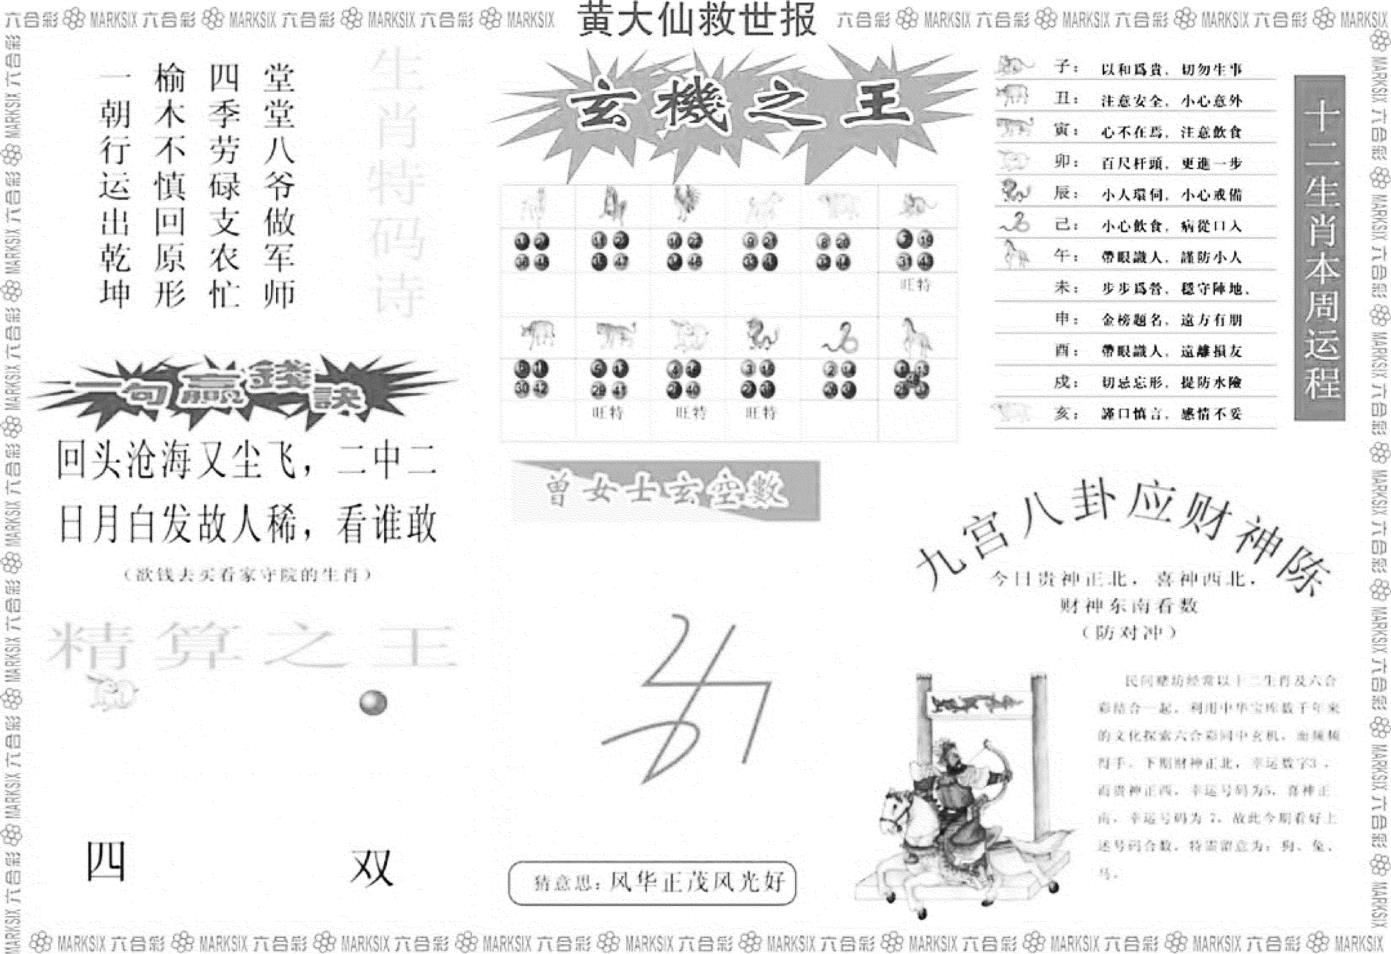 六合彩 MARKSIX 六合彩 MARKSIX 六合彩 MARKSIX 六合彩 MARKSIX
黄大仙救世报
六合彩 MARKSIX 六合彩 MARKSIX 六合彩 MARKSIX 六合彩 MARKSIX
生肖特码诗
堂堂八爷做军师
四季劳碌支农忙
榆木不慎回原形
一朝行运出乾坤
玄機之王
旺特
旺特
旺特
旺特
十二生肖本周运程
子：以和爲貴，切勿生事
丑：注意安全，小心意外
寅：心不在焉，注意飲食
卯：百尺杆頭，更進一步
辰：小人環伺，小心戒備
己：小心飲食，病從口入
午：帶眼識人，謹防小人
未：步步爲營，穩守陣地、
申：金榜题名，遠方有朋
酉：帶眼識人，遠離損友
戌：切忌忘形，提防水險
亥：謹口慎言，感情不妥
一句贏錢訣
回头沧海又尘飞，二中二
日月白发故人稀，看谁敢
（欲钱去买看家守院的生肖）
精算之王
四
双
曾女士玄空數
猜意思：风华正茂风光好
九宫八卦应财神陈
今日贵神正北，喜神西北，
财神东南看数
（防对冲）
民间赌坊经常以十二生肖及六合
彩结合一起，利用中华宝库数千年来
的文化探索六合彩同中玄机，而频频
得手。下期财神正北，幸运数字3，
而贵神正西，幸运号码为5，喜神正
南，幸运号码为 7，故此今期看好上
述号码合数，特需留意为：狗、兔、
马。
MARKSIX 六合彩 MARKSIX 六合彩 MARKSIX 六合彩 MARKSIX 六合彩 MARKSIX 六合彩 MARKSIX 六合彩 MARKSIX 六合彩 MARKSIX 六合彩 MARKSIX 六合彩 MARKSIX